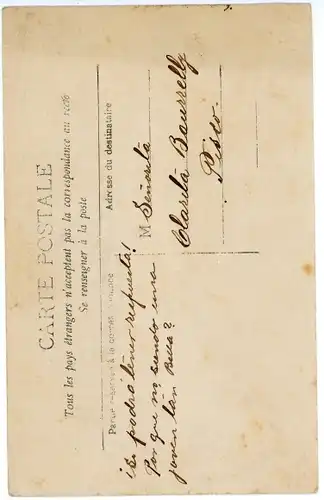 CARTE POSTALE
Tous les pays étrangers n'acceptent pas la correspondance au recto
Se renseigner à la poste
Partie réservée à la correspondance
Adresse du destinataire
M Señorita
Clarita
Pisco.
podrá tener respuesta!
Por que no siendo una
joven tan